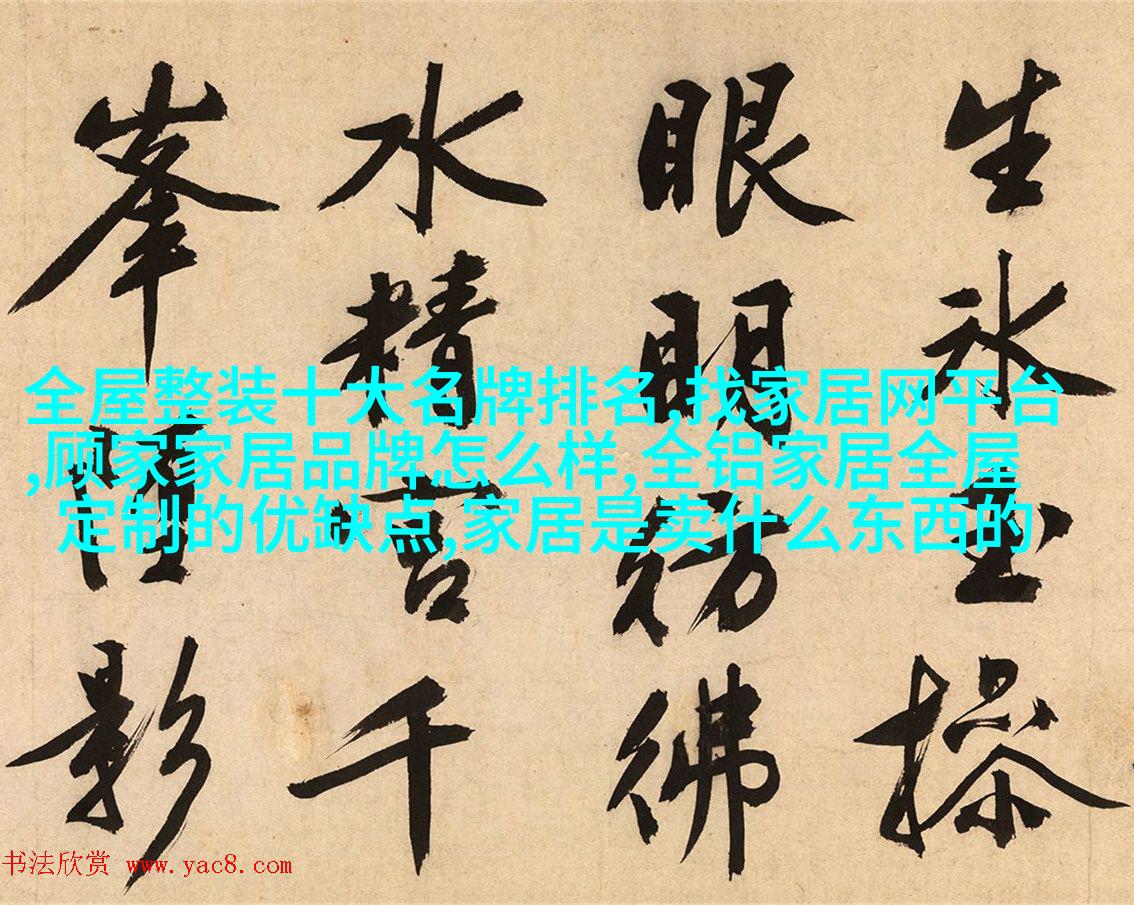 生氷玉操
眼明彷彿
水精宮千
峯影
全屋整装十大名牌排名,找家居网平台
,顾家家居品牌怎么样,全铝家居全屋
定制的优缺点,家居是卖什么东西的
书法欣赏 www.yac8.com